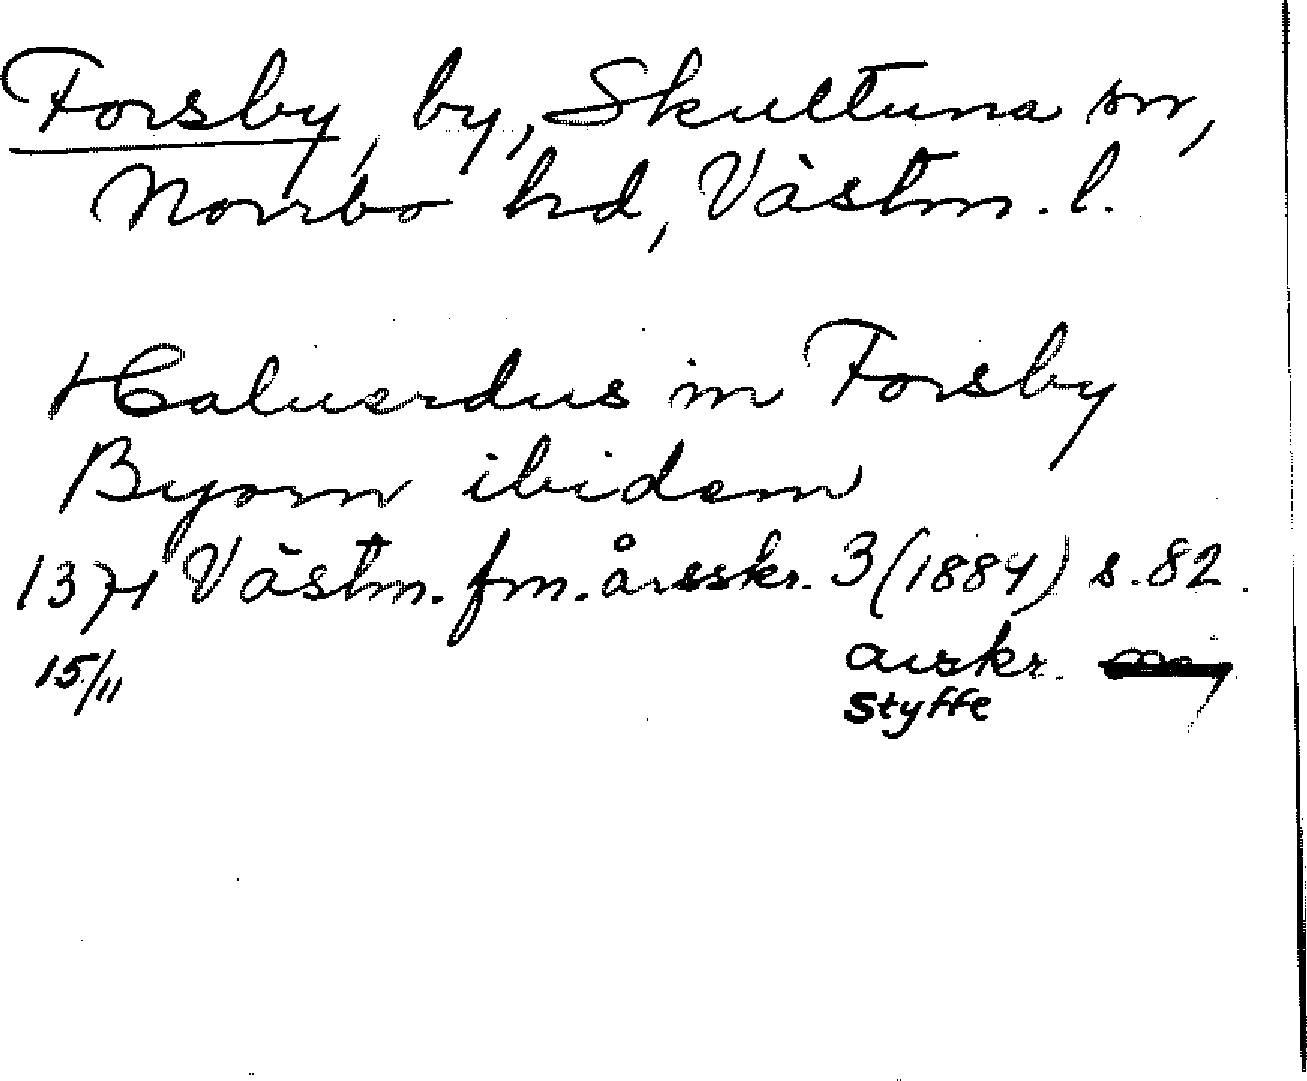 Forsby, by, Skultuna sn,
Norrbo hd, Västm. l.
Haluardus in Forsby
Byorn ibidem
1371 Västm. fm. årsskr. 3 (1884) s. 82.
15/11 avskr.
Styffe